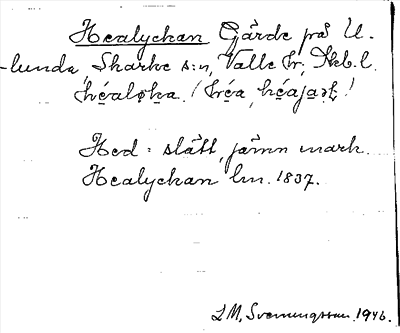 Healyckan Gärde på U.
-lunda, Skarke s:n, Valle hr; Skb.l.
Hed = slätt, jämn mark.
Healyckan lm. 1837.
L M, Svenungsson. 1946.